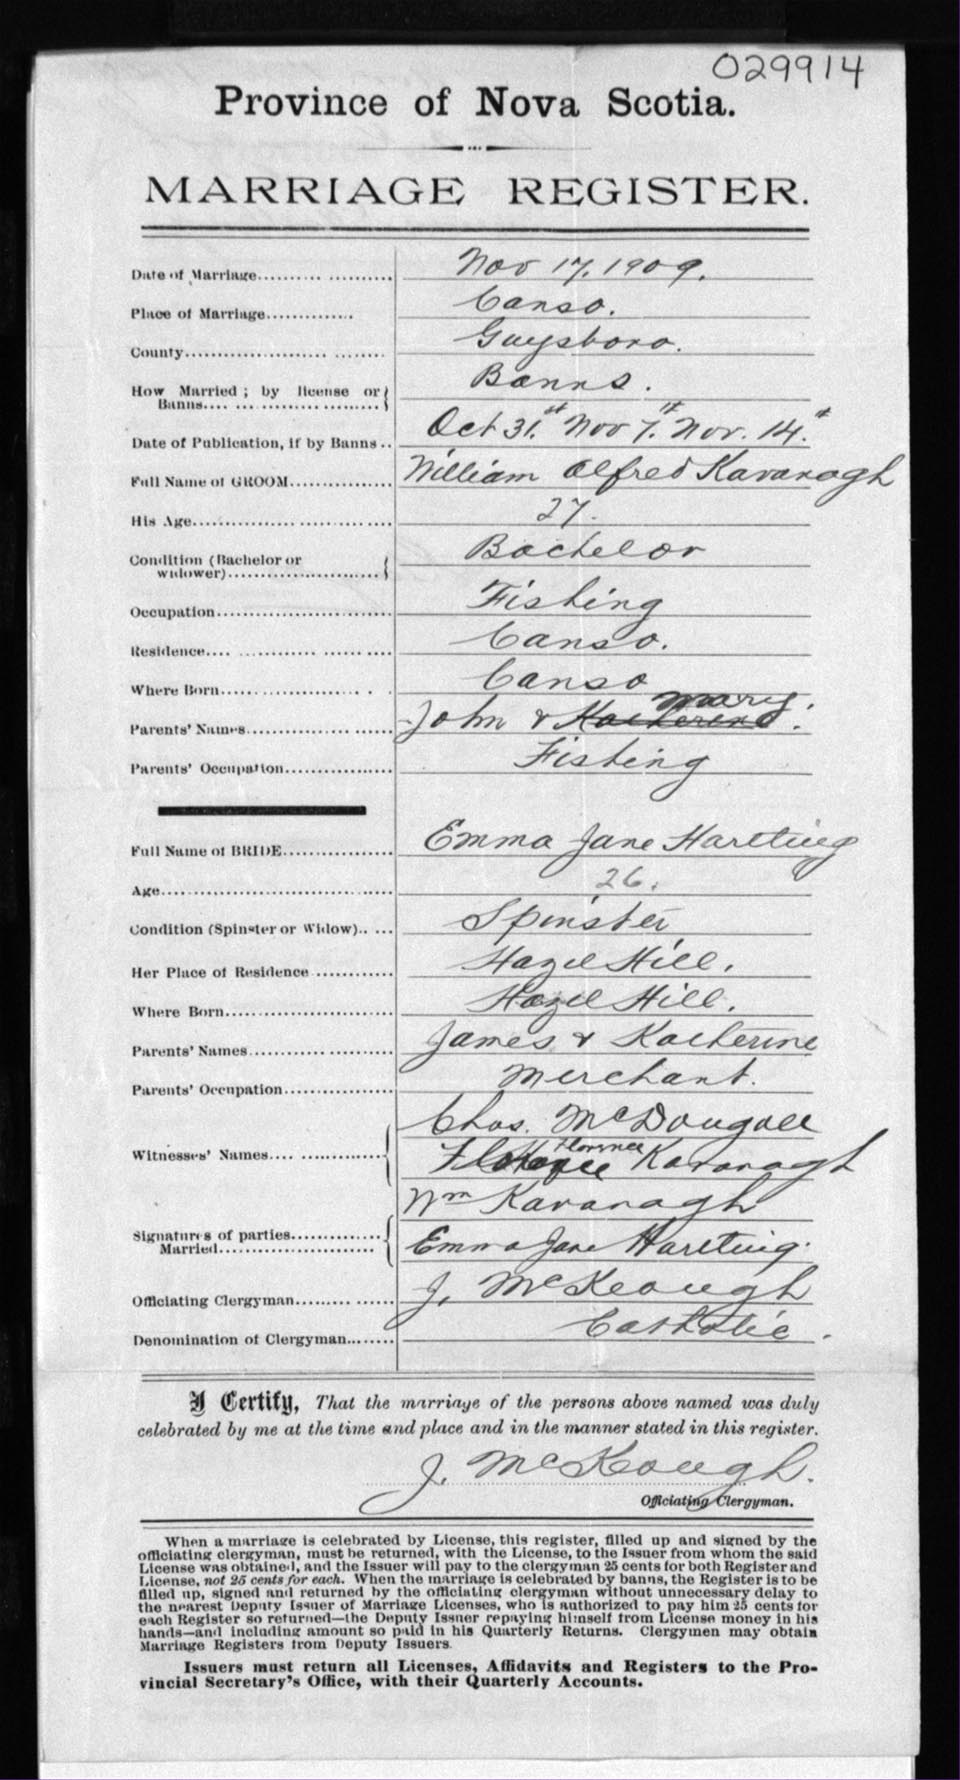 029914
Province of Nova Scotia.
MARRIAGE REGISTER.
Date of Marriage.......... ........... Nov 17, 1909.
Place of Marriage.............. Canso.
County........................ ........ Guysboro.
How Married ; by license or Banns.
Banns.... ... ................ .........
Date of Publication, if by Banns .. Oct 31.st Nov 7.th Nov. 14.th
Full Name of GROOM................. William Alfred Kavanagh
His Age................... ... .......... 27.
Condition (Bachelor or Bachelor
widower)...........................
Occupation............................. Fishing
Residence.... ............ ...... .... Canso.
Where Born................... . . Canso
Mary.
Parents' Names................. ...... John & Katherine.
Parents' Occupation.................. Fishing
Full Name of BRIDE.................. Emma Jane Hartling
Age...................................... 26.
Condition (Spinster or Widow).. ... Spinster
Her Place of Residence ............ Hazel Hill.
Where Born............................ Hazel Hill.
Parents' Names............ ........... James & Katherine
Parents' Occupation.................. Merchant.
Chas. McDougall
Florence
Witnesses' Names.... ............... Kavanagh
Wm Kavanagh
Signatures of parties..............
Married......................... Emma Jane Hartling.
Officiating Clergyman......... ...... J. McKeough
Denomination of Clergyman........ Catholic.
I Certify, That the marriage of the persons above named was duly
celebrated by me at the time and place and in the manner stated in this register.
J. McKeough.
Officiating Clergyman.
When a marriage is celebrated by License, this register, filled up and signed by the
officiating clergyman, must be returned, with the License, to the Issuer from whom the said
License was obtained, and the Issuer will pay to the clergyman 25 cents for both Register and
License, not 25 cents for each. When the marriage is celebrated by banns, the Register is to be
filled up, signed and returned by the officiating clergyman without unnecessary delay to
the nearest Deputy Issuer of Marriage Licenses, who is authorized to pay him 25 cents for
each Register so returned—the Deputy Issuer repaying himself from License money in his
hands—and including amount so paid in his Quarterly Returns. Clergymen may obtain
Marriage Registers from Deputy Issuers.
Issuers must return all Licenses, Affidavits and Registers to the Pro-
vincial Secretary's Office, with their Quarterly Accounts.